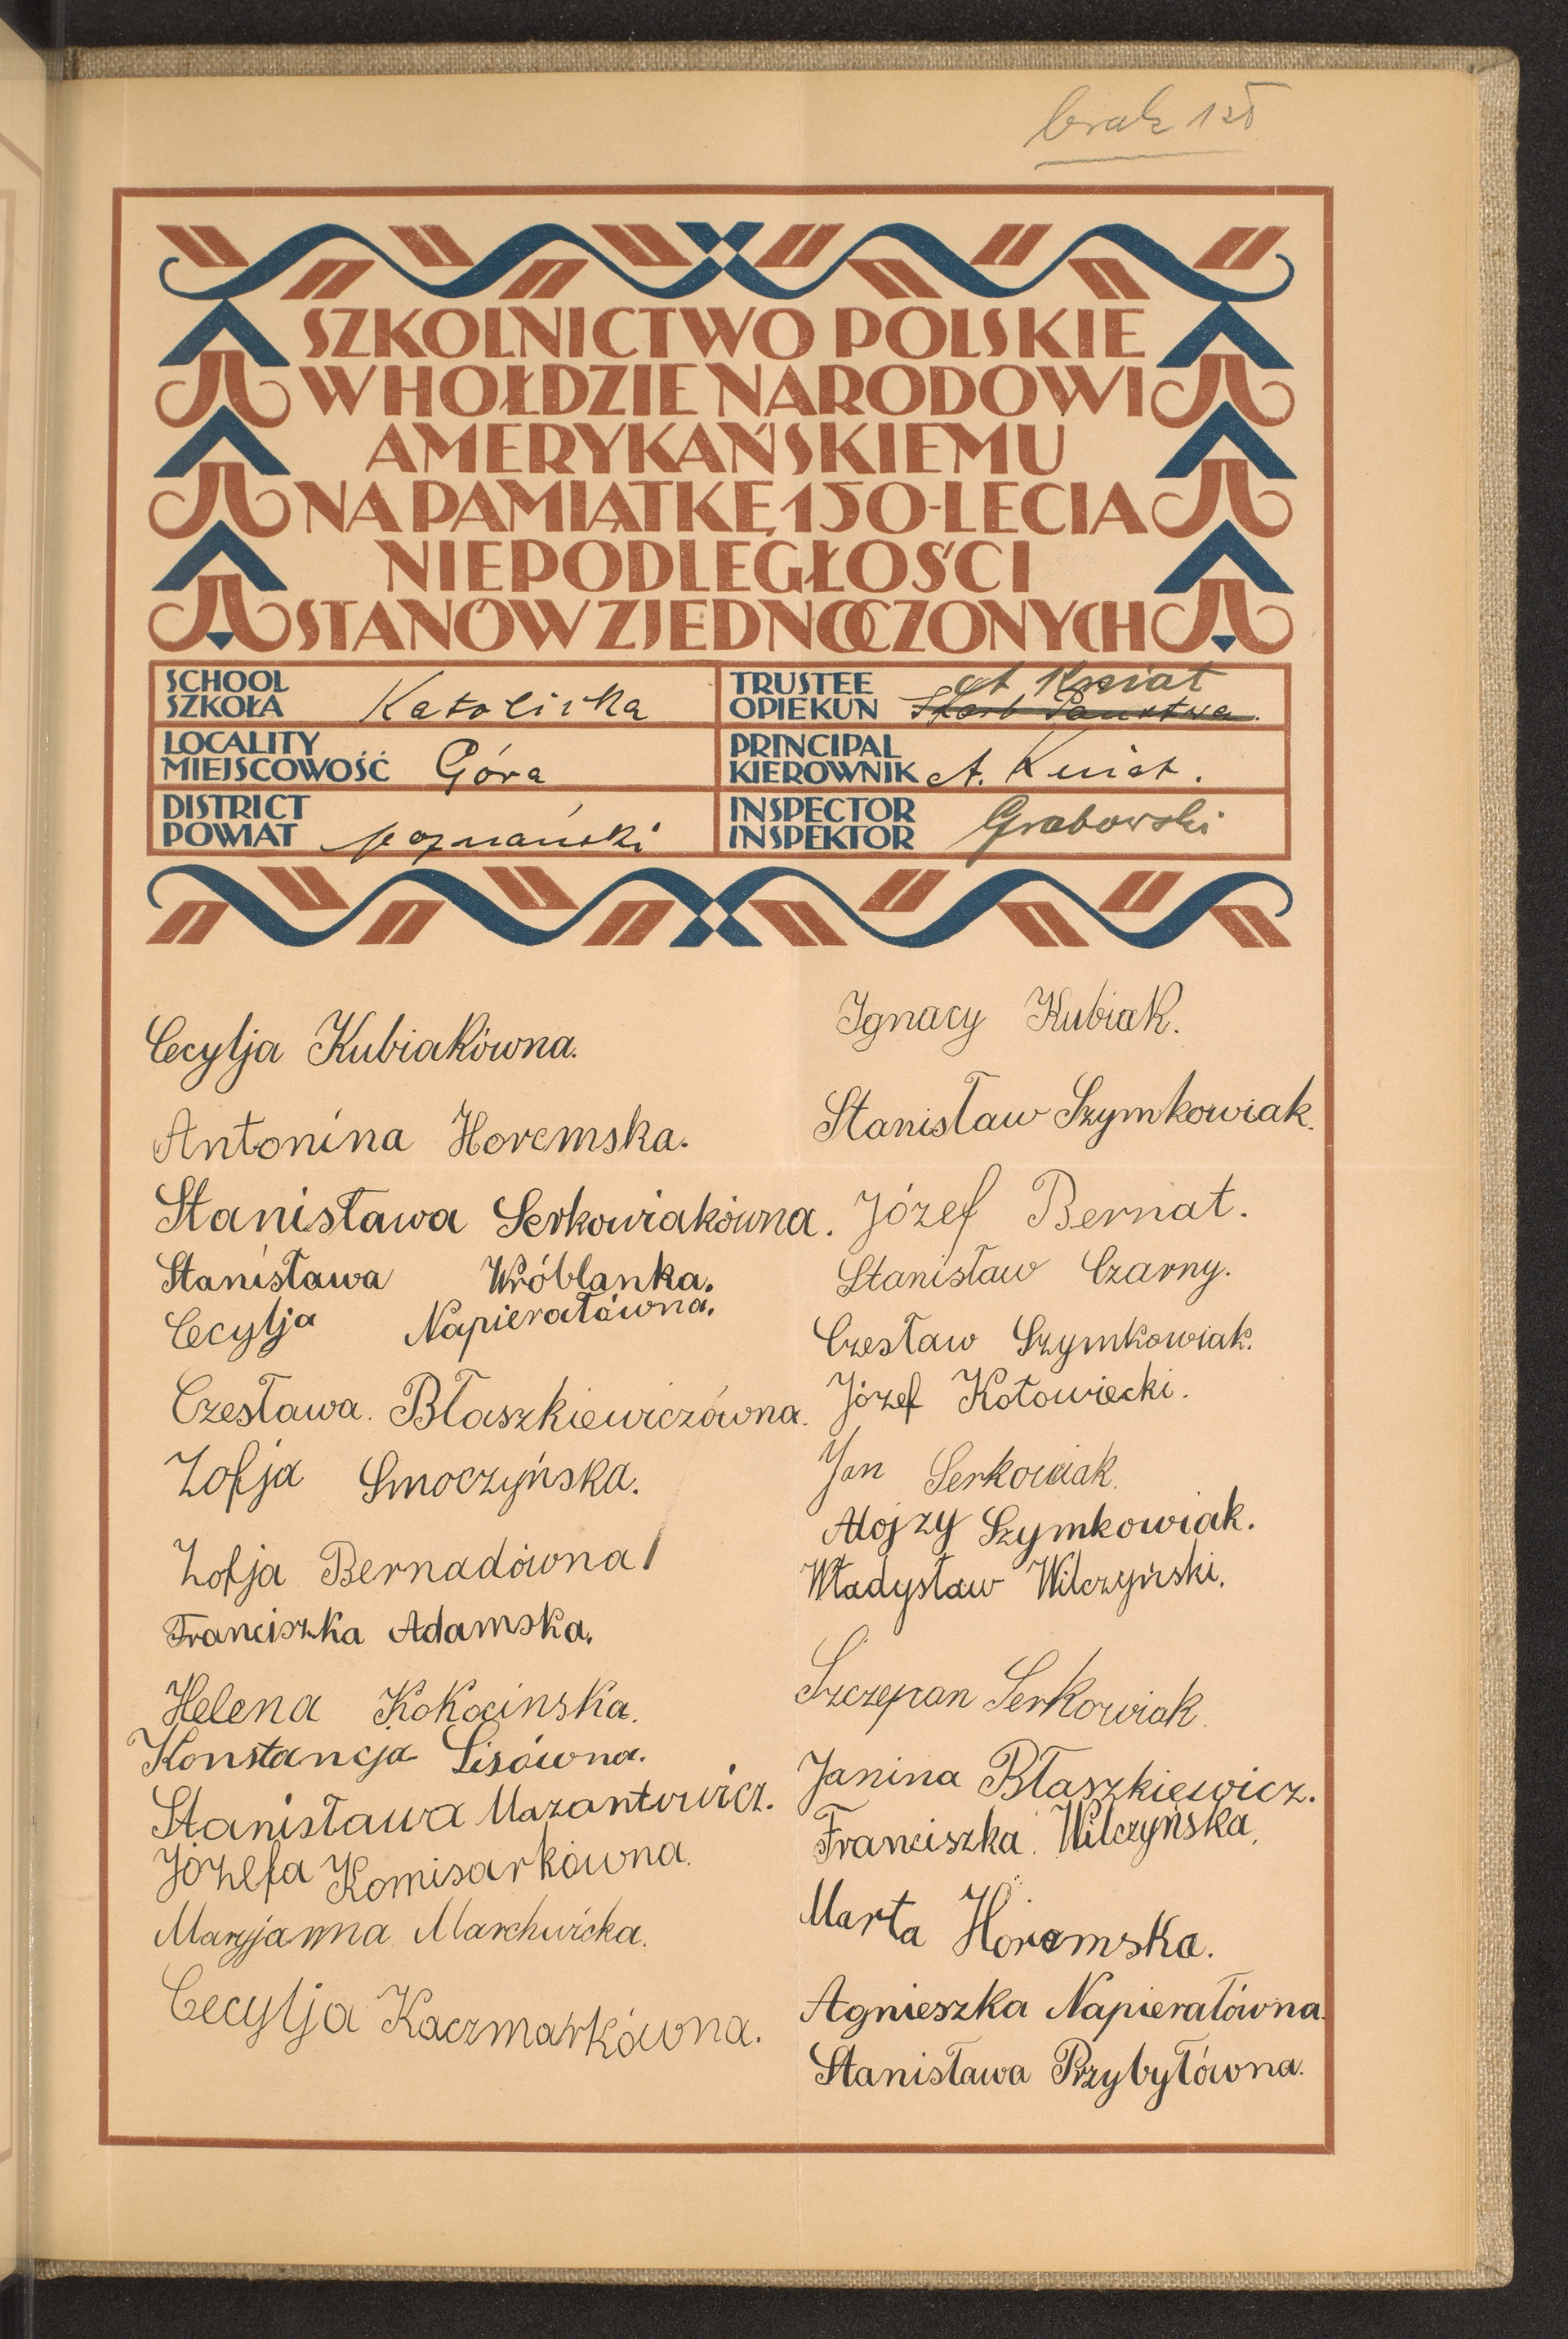 brak 1 zł
SZKOLNICTWO POLSKIE
W HOŁDZIE NARODOWI
AMERYKAŃSKIEMU
NA PAMIĄTKĘ 150-LECIA
NIEPODLEGŁOŚCI
STANÓW ZJEDNOCZONYCH
SCHOOL
SZKOŁA Katolicka
TRUSTEE
OPIEKUN A Kwiat
Skarb Państwa.
LOCALITY
MIEJSCOWOŚĆ Góra
PRINCIPAL
KIEROWNIK A. Kwiat.
DISTRICT
POWIAT poznański
INSPECTOR
INSPEKTOR Grabowski
Cecylja Kubiakówna.
Antonina Horemska.
Stanisława Serkowiakówna.
Stanisława Wróblanka.
Cecylja Napierałówna.
Czesława. Błaszkiewiczówna.
Zofja Smoczyńska.
Zofja Bernadówna
Franciszka Adamska.
Helena Kokocinska.
Konstancja Lisówna.
Stanisława Mazantowicz.
Józefa Komisarkówna.
Maryjanna Marchwicka.
Cecylja Kaczmarkówna.
Ignacy Kubiak.
Stanisław Szymkowiak.
Józef Bernat.
Stanisław Czarny.
Czesław Szymkowiak.
Józef Kotowiecki.
Jan Serkowiak.
Alojzy Szymkowiak.
Władysław Wilczyński.
Szczepan Serkowiak.
Janina Błaszkiewicz.
Franciszka Wilczyńska.
Marta Horemska.
Agnieszka Napierałówna.
Stanisława Przybyłówna.